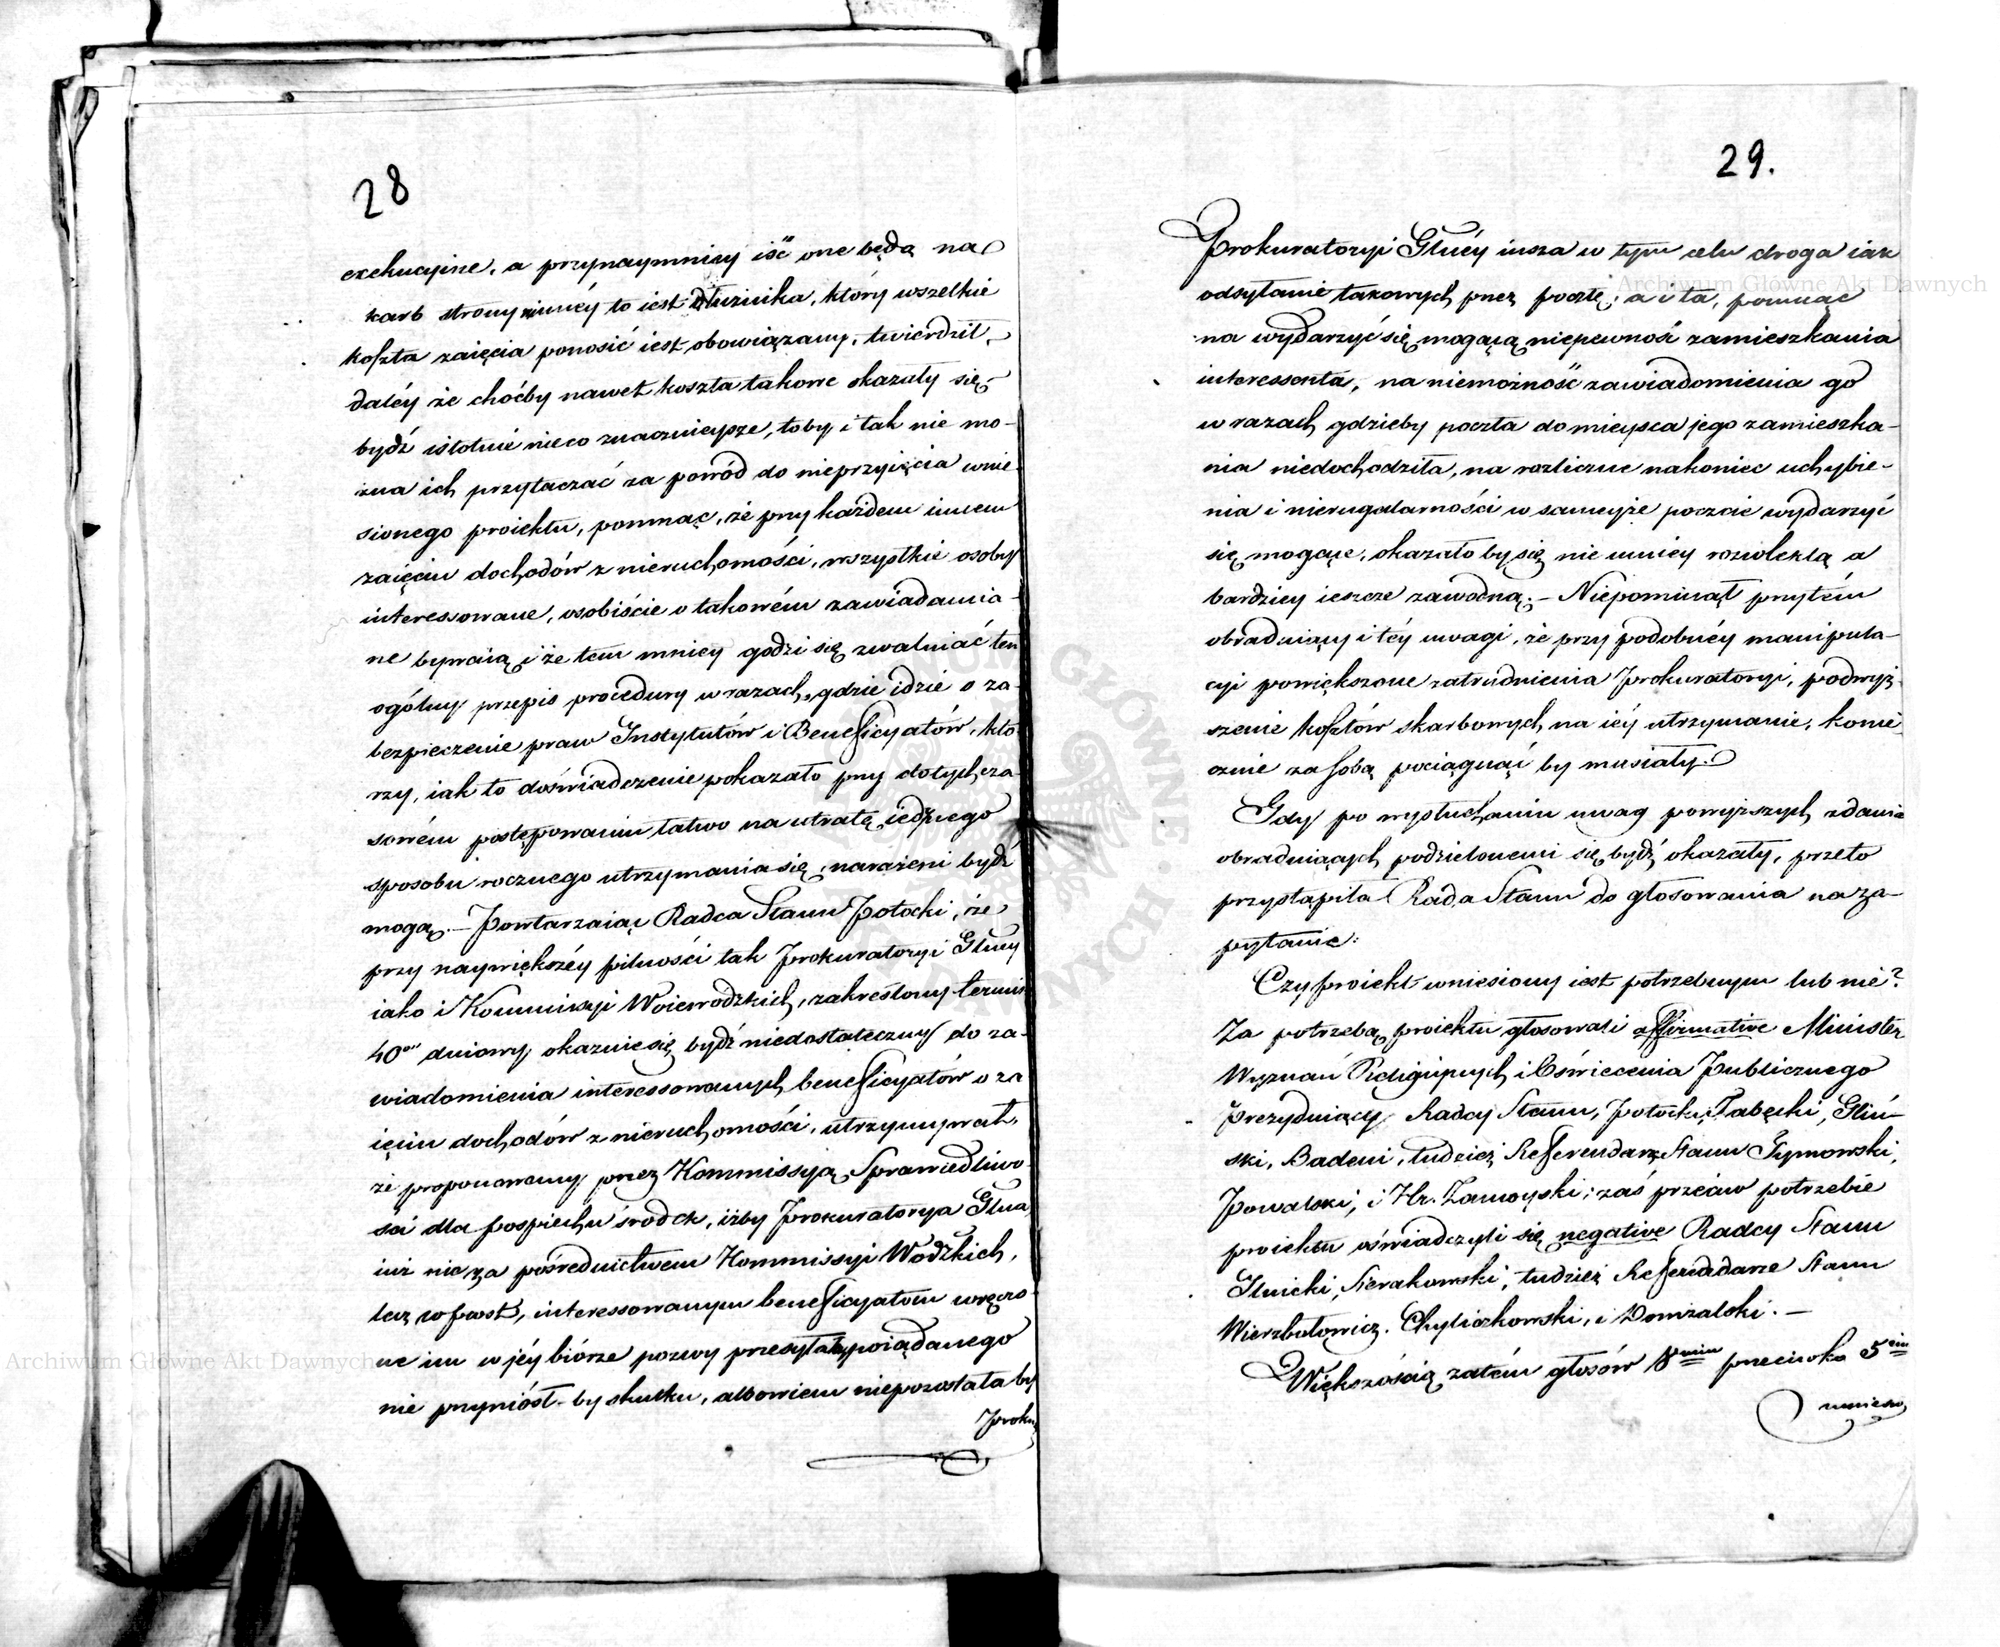 28
exekucyine, a przynaymniey iść one będą na
karb strony inney to iest dłużnika, który wszelkie
koszta zaięcia ponosić iest obowiązany, twierdził,
daléy że choćby nawet koszta takowe okazały się
bydź istotnie nieco znacznieysze, toby i tak nie mo-
żna ich przytaczać za powód do nieprzyięcia wnie-
sionego proiektu, pomnąc, że przy każdem innem
zaięciu dochodów z nieruchomości, wszystkie osoby
interessowane, osobiście o takowém zawiadamia-
ne bywaią i że tem mniey godzi się zwalniać ten
ogólny przepis procedury w razach, gdzie idzie o za-
bezpieczenie praw Instytutów i Beneficyatów, któ-
rzy, iak to doświadczenie pokazało przy dotychcza-
sowém postępowaniu łatwo na utratę iedynego
sposobu rocznego utrzymania się, narażeni bydź
mogą. — Powtarzaiąc Radca Stanu Potocki, że
przy naywiększéy pilności tak Prokuratoryi Głney
iako i Kommissyi Woiewodzkich, zakreślony termin
40to dniowy okazuie się bydź niedostateczny do za-
wiadomienia interessowanych beneficyatów o za-
ięciu dochodów z nieruchomości, utrzymywał,
że proponowany przez Kommissyią Sprawiedliwo-
ści dla pospiechu środek, iżby Prokuratorya Głna
iuż nie za pośrednictwem Kommissyi Wodzkich,
lecz wprost, interessowanym beneficyatom wręczo-
ne im w jéy biórze pozwy przesyłała, pożądanego
nie przyniósł-by skutku, albowiem niepozostała by
Proku
29.
Prokuratoryi Głnéy insza w tym celu droga iak
odsyłanie takowych przez pocztę; a i ta, pomnąc
na wydarzyć się mogącą niepewność zamieszkania
interessenta, na niemożność zawiadomienia go
w razach gdzieby poczta do mieysca jego zamieszka-
nia niedochodziła, na rozliczne nakoniec uchybie-
nia i nieregularności w sameyże poczcie wydarzyć
się mogące, okazało by się nie mniey rozwlekłą a
bardziey ieszcze zawodną. — Niepominął przytém
obraduiący i téy uwagi, że przy podobnéy manipula-
cyi powiększone zatrudnienia Prokuratoryi, podwyż-
szenie kosztów skarbowych na iéy utrzymanie, konie-
cznie za sobą pociągnąć by musiały.
Gdy po wysłuchaniu uwag powyższych zdania
obraduiących podzielonemi się bydź okazały, przeto
przystąpiła Rada Stanu do głosowania na za-
pytanie:
Czy proiekt wniesiony iest potrzebnym lub nie?
Za potrzebą proiektu głosowali affirmative Minister
Wyznań Religiinych i Oświecenia Publicznego
Prezyduiący Radcy Stanu, Potocki, Łabęcki, Gliń-
ski, Badeni, tudzież Referendarze Stanu Tymowski,
Powalski, i Hr. Zamoyski; zaś przeciw potrzebie
proiektu oświadczyli się negative Radcy Stanu
Głnicki, Sierakowski, tudzież Referendarze Stanu
Wierzbołowicz, Chyliczkowski, i Domżalski. —
Większością zatém głosów 8miu przeciwko 5ciu
wniesio